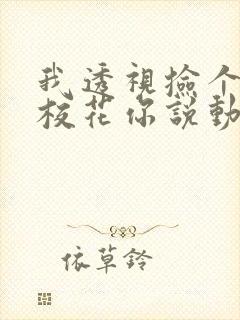 我透視撿个
校花你說動
依草鈴